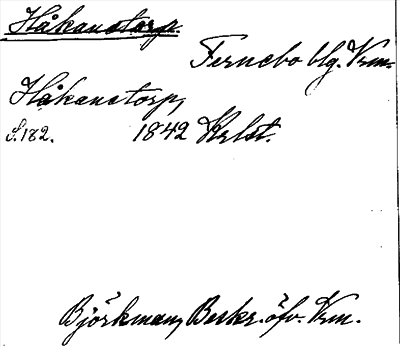 Håkanstorp.
Fernebo blg. Vrm.
Håkanstorp,
S. 182. 1842 Krlst.
Björkman, Beskr. öfv. Vrm.